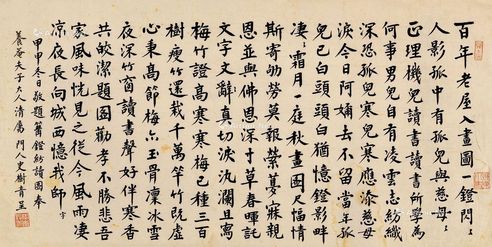 百年老屋入畫圖一鐙閃〻
人影孤中有孤兒與慈母〻
正理機兒讀書讀書所學為
何事男兒自有凌雲志紡織
深恐孤兒寒兒寒應添慈母
淚今日阿嬭去不留當年孤
兒已白頭頭白猶憶鐙影畔
淒〻霜月一庭秋畫圖尺幅情
斯寄劬勞莫報蓼莪寐親
恩並與佛恩深寸草春暉託
文字文辭真切淚汍瀾且寫
梅竹證高寒寒梅已種三百
樹瘦竹還栽千萬竿竹既虛
心秉高節梅亦玉骨凜冰雪
夜深竹窗讀書聲好伴寒香
共皎潔題圖勸孝不勝悲吾
家風味恍見之從今風雨凄
凉夜長向城西憶我師 字
甲申冬日敬題篝鐙紡讀圖奉
養菴夫子大人清屬 門人史樹青呈